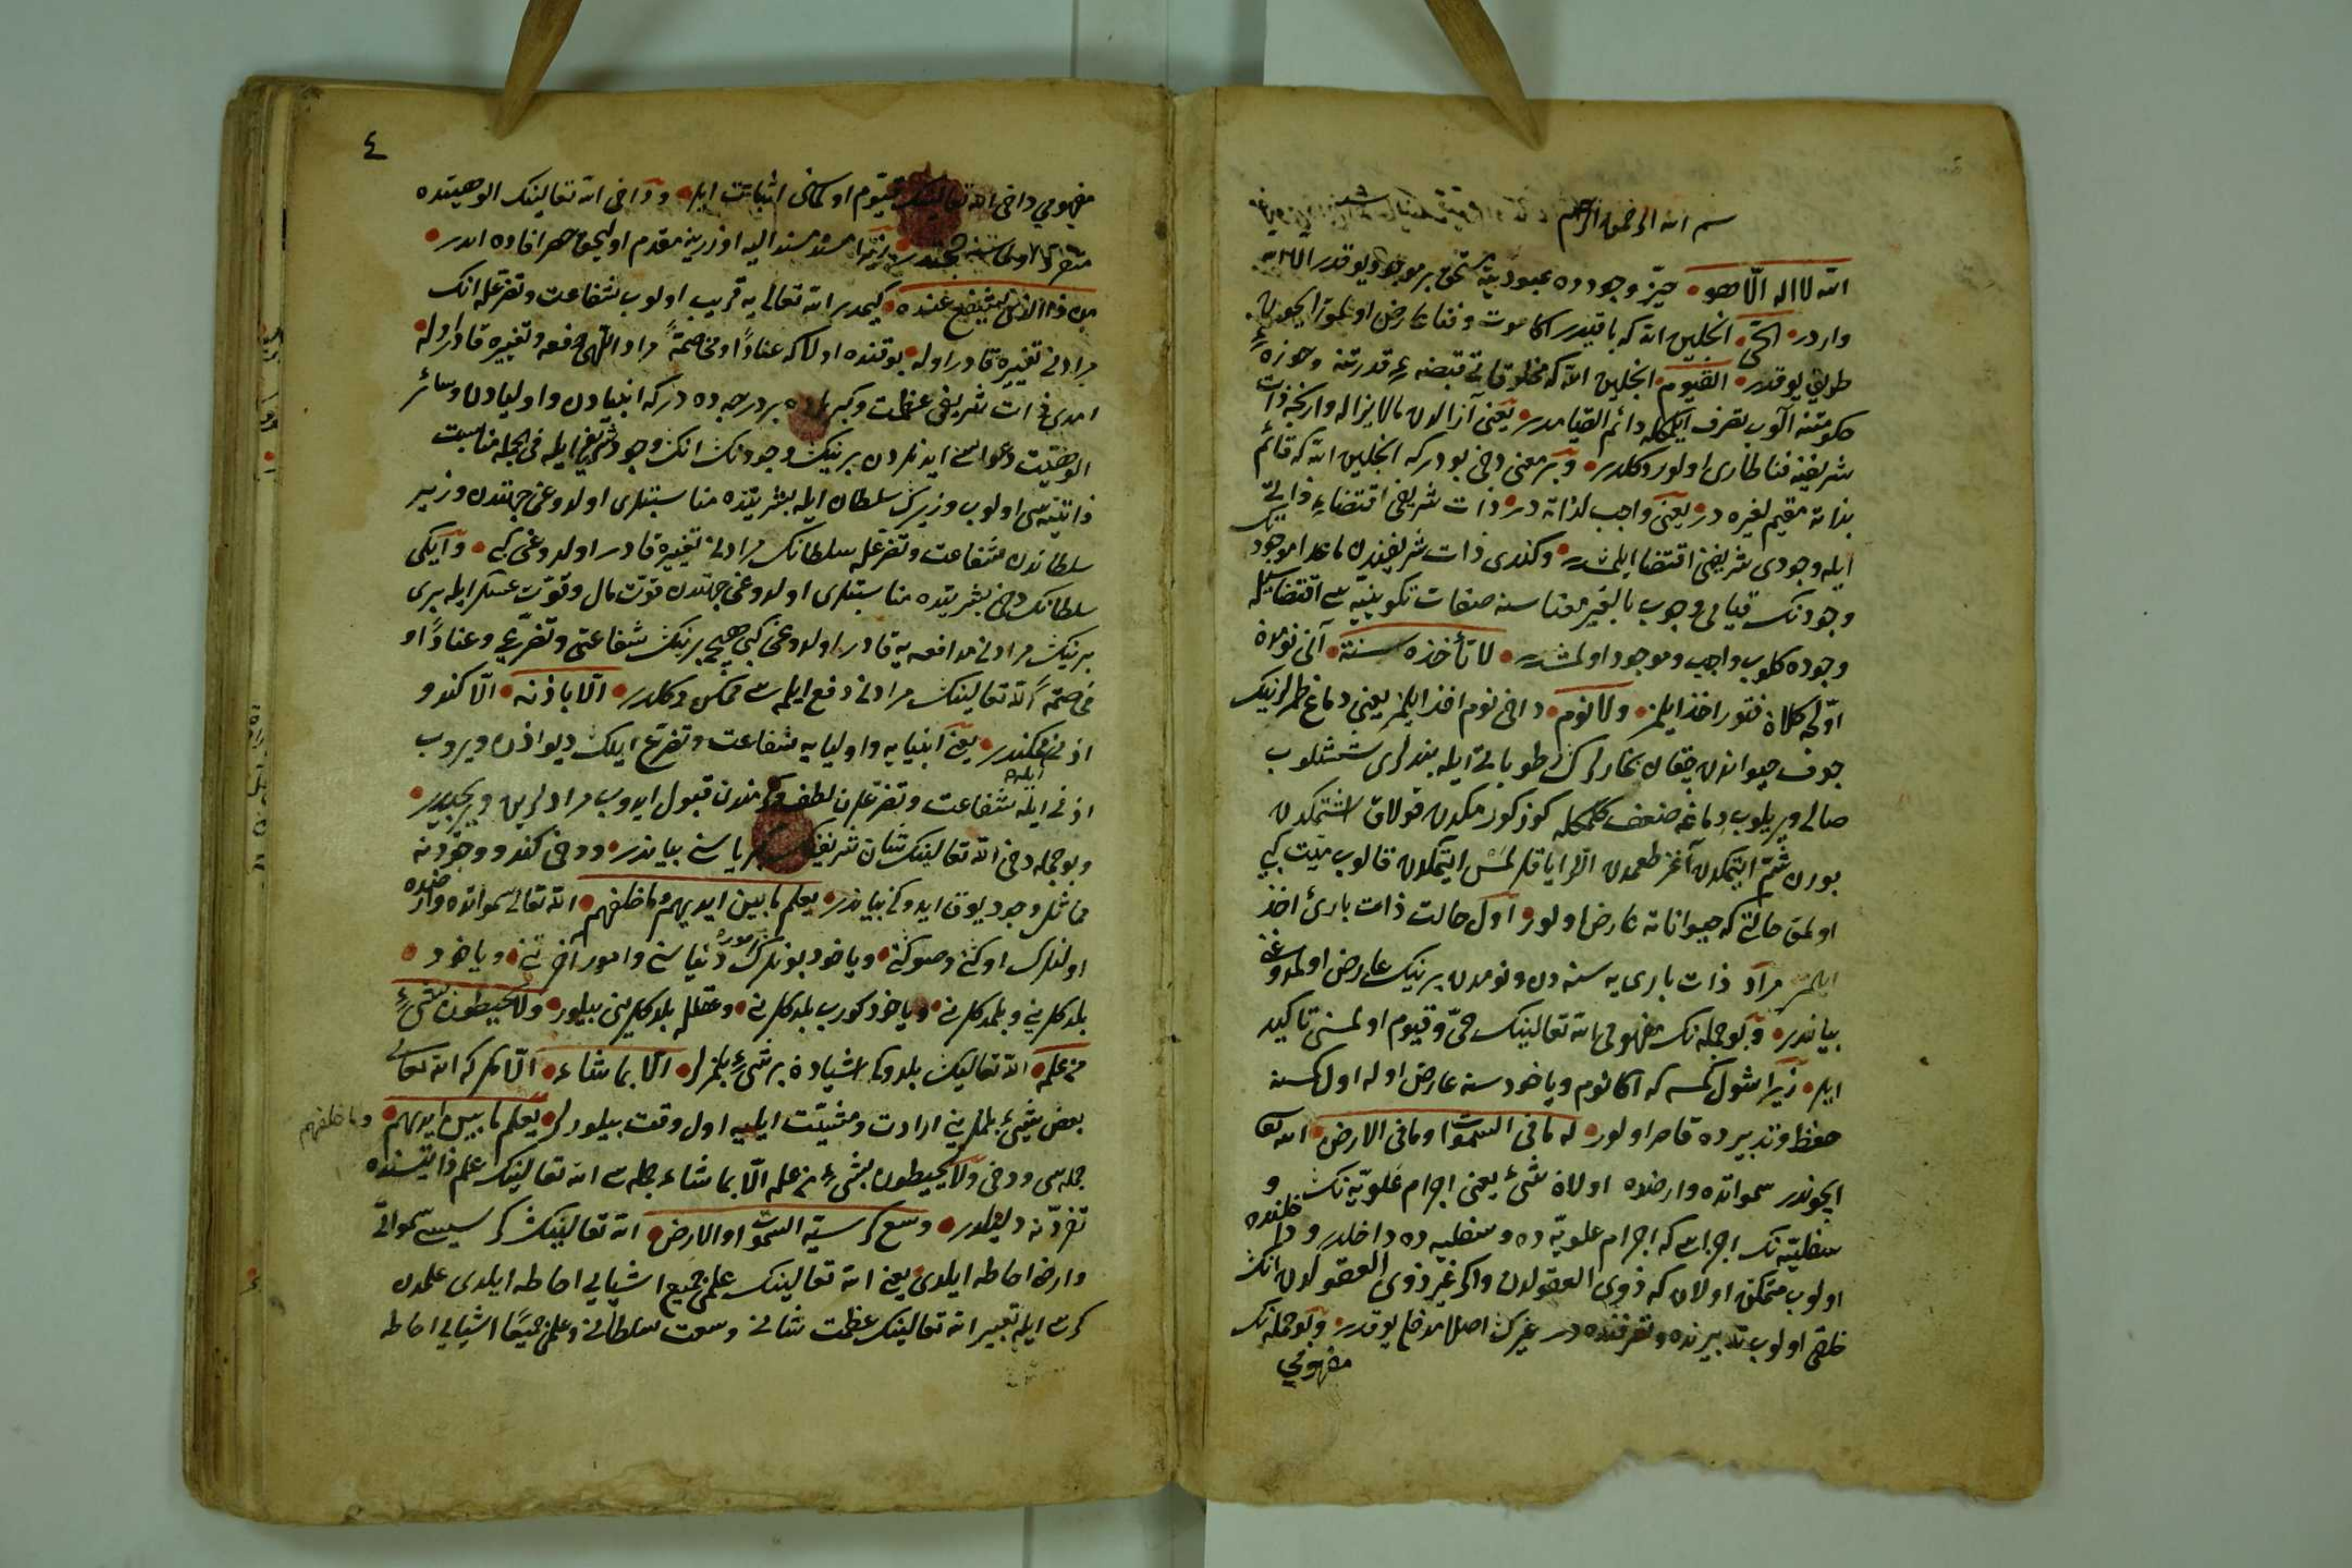 بسم الله الرحمن الرحيم
الله لا اله الّا هو حيّز وجودده عبوديته مستحق بر موجود يوقدر الا الله
واردر الحىّ انجلين الله كه باقيدر اكا موت وفنا عارض اولمق ايچون
طريق يوقدر القيوم انجلين الله كه مخلوقاتى قبضهء قدرتنه وحوزهء
حكومتنه آلوب تصرف ايلمكله دائم القيامدر يعنى آزالدن مالايزاله وارنجه ذات
شريفنه فنا طارى اولور دكلدر وبر معنى دخى بودركه انجلين الله كه قائم
بذاته مقيم لغيره در يعنى واجب لذاته در ذات شريفى اقتضاء ذاتى
ايله وجودى شريفنى اقتضا ايلمشدر وكندى ذات شريفندن ماعدا موجودك
وجودنك قيامى وجوب بالغير معناسنه صفات تكوينيّه سى اقتضاسيله
وجوده كلوب واجب وموجود اولمشدر لا تأخذه سنة آنى نومدن
اوّل كلان فتور اخذ ايلمز ولا نوم داخى نوم اخذ ايلمز يعنى دماغ طمرلرينك
جوف حيواندن چيقان بخارلرك رطوباتى ايله بندلرى سستلوب
صالى ويريلوب دماغه ضعف كلمكله كوز كورمكدن قولاق اشتمكدن
بورن شمّ ايتمكدن آغز طعمدن الّر اياقلر لمس ايتمكدن قالوب ميت كبى
اولمق حالتى كه حيواناته عارض اولور اول حالت ذات بارئ اخذ
ايلمز مراد ذات بارى يه سنه دن ونومدن برينك عارض اولمدوغن
بياندر وبو جمله نك مفهومى الله تعالينك حىّ وقيوم اولمسنى تاكيد
ايلر زيرا شول كمسه كه اكا نوم وياخود سنه عارض اوله اول كمسنه
حفظ وتدبيرده قاصر اولور له ما فى السموات وما فى الارض الله تعا
ايچوندر سمواتده وارضده اولان شىء يعنى اجرام علويّه نك و
سفليّه نك اجزاسى كه اجرام علويّه ده وسفليه ده داخلدر وداخلنده
اولوب متمكن اولان كه ذوى العقولدن واكر غير ذوى العقولدن انك
خلقى اولوب تدبيرنده وتصرفنده در غيرك اصلا مدخلى يوقدر وبو جمله نك
مفهومى
٤
مفهومى داخى الله تعالينك قيّوم اولماسنى اثباتت ايلر وداخى الله تعالينك الوهيتده
متفرّد اولماسنه حجّتدر زيرا مسند مسند اليه اوزرينه مقدم اوليجق حصر افاده ايدر
من ذا الذى يشفع عنده كيمدر الله تعالى يه قريب اولوب شفاعت وتضرعله انك
مرادنى تغييره قادر اوله بو تقنده اولاكه عنادًا ومخاصمةً مراد اللهى دفعه وتغييره قادر اوله
امدى ذات شريفى عظمت وكبرياده بر درجه ده دركه انبيادن واوليادن وسائر
الوهيّت دعواسى ايدنلردن برينك وجودنك انك وجود شريفى ايله فى الجمله مناسبت
ذاتيّه سى اولوب وزيرك سلطان ايله بشريتده مناسبتلرى اولدوغى جهتدن وزير
سلطاندن شفاعت وتضرعله سلطانك مرادنى تغييره قادر اولدوغى كبى وايكى
سلطانك دخى بشريتده مناسبتلرى اولدوغى جهتدن قوّت مال وقوّت عسكر ايله برى
برينك مرادنى مدافعه يه قادر اولدوغى كبى هيچ برينك شفاعتى وتضرّعى وعنادًا و
مخاصمةً الله تعالينك مرادنى دفع ايلمسى ممكن دكلدر الّا باذنه الّا كندو
اذنى ممكندر يعنى انبيايه واوليايه شفاعت وتضرّع ايلك ديو اذن ويروب
اذنى ايله ايلدوكى شفاعت وتضرعلرن لطف وكرمندن قبول ايدوب مرادلرين ويريجيدر
وبو جمله دخى الله تعالينك شان شريفينك كبرياسنى بياندر ودخى كندو وجودنه
مماثل وجود يوق ايدوكنى بياندر يعلم ما بين ايديهم وما خلفهم الله تعالى سمواتده وارضده
اولنلرك اوكنى وصوكنى وياخود بونلرك امور دنياسنى وامور آخرتنى وياخود
بلدكلرينى وبلمدكلرينى وياخود كورب بلدكلرينى وعقلله بلدكلرينى بيلور ولا يحيطون بشىء
من علمه الله تعالينك بلدوكى اشيادن بر شىء بلمزلر الّا بما شاء الّا مكر كه الله تعالى
بعض شىء بلملرينى ارادت ومشيّت ايليه اول وقت بيلورلر يعلم ما بين ايديهم وما خلفهم
جمله سى ودخى ولا يحيطون بشىء من علمه الّا بما شاء جمله سى الله تعالينك علم ذاتيسنده
تفرّدنه دليلدر وسع كرسيّه السموات والارض الله تعالينك كرسيسى سمواتى
وارضى احاطه ايلدى يعنى الله تعالينك علمى جميع اشيايى احاطه ايلدى علمدن
كرسى ايله تعبير الله تعالينك عظمت شاننى وسعت سلطاننى وعلمى جميعًا اشيايى احاطه